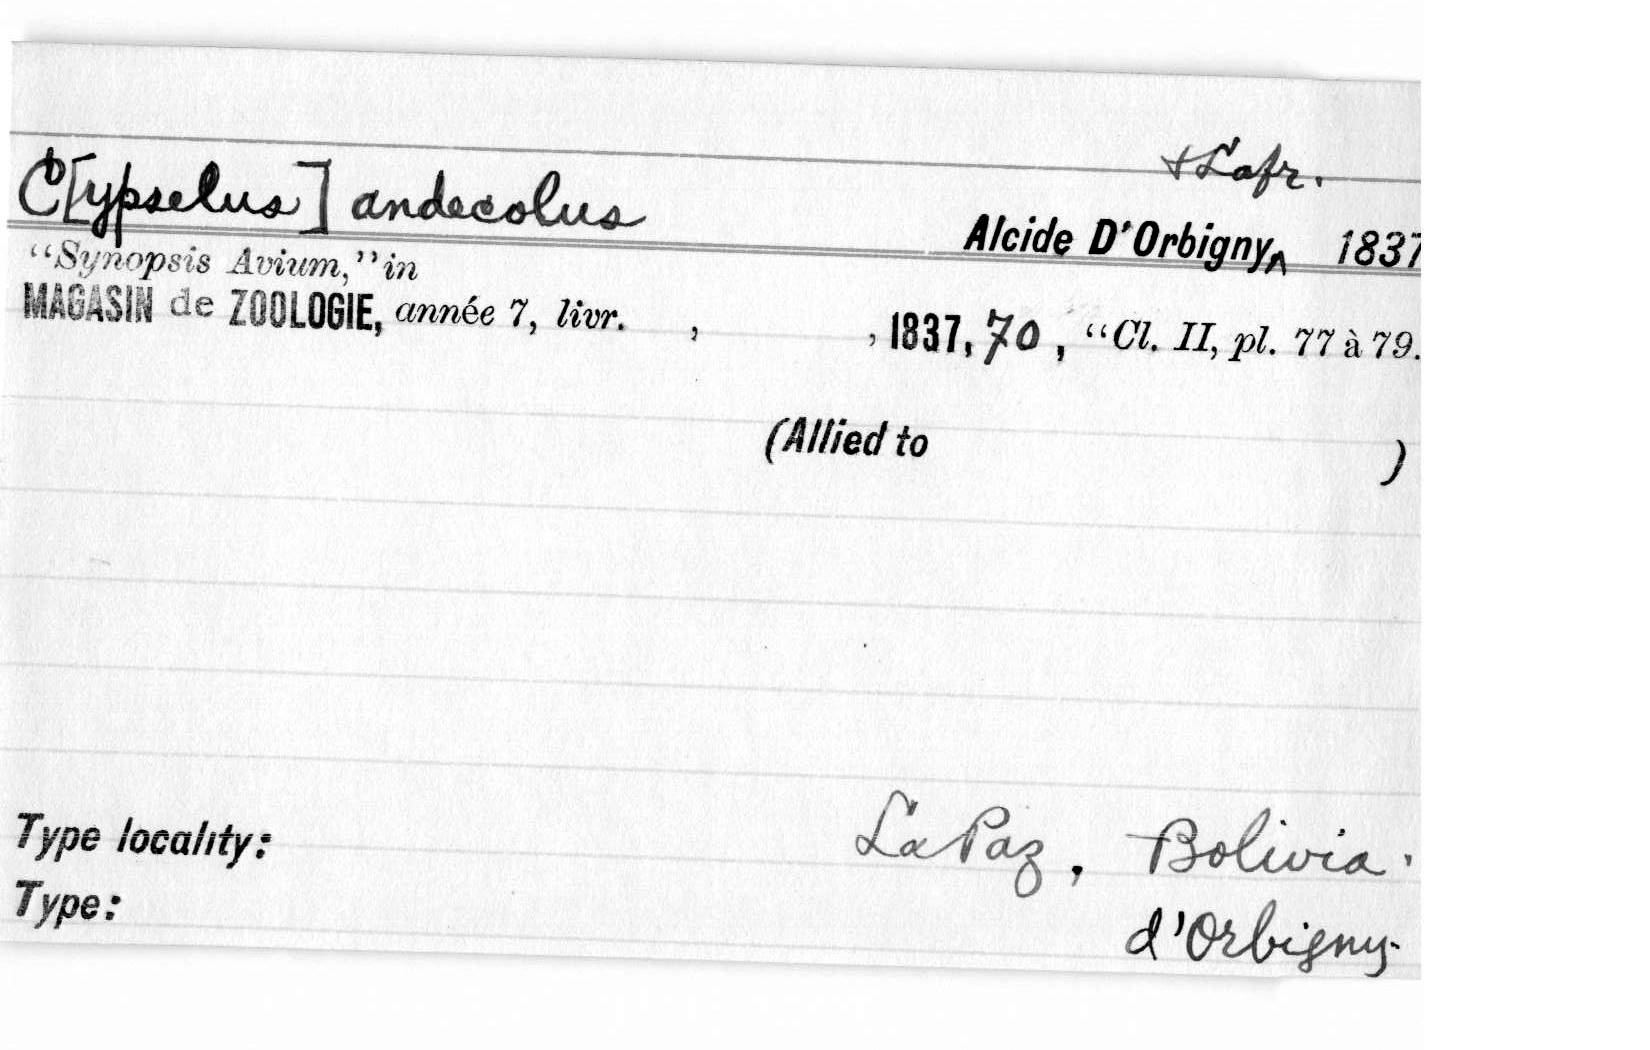 & Lafr.
C[ypselus] andecolus Alcide D'Orbigny^ 1837
"Synopsis Avium," in
MAGASIN de ZOOLOGIE, année 7, livr. , , 1837, 70, "Cl. II, pl. 77 à 79.
(Allied to )
Type locality: La Paz, Bolivia.
Type: d'Orbigny.